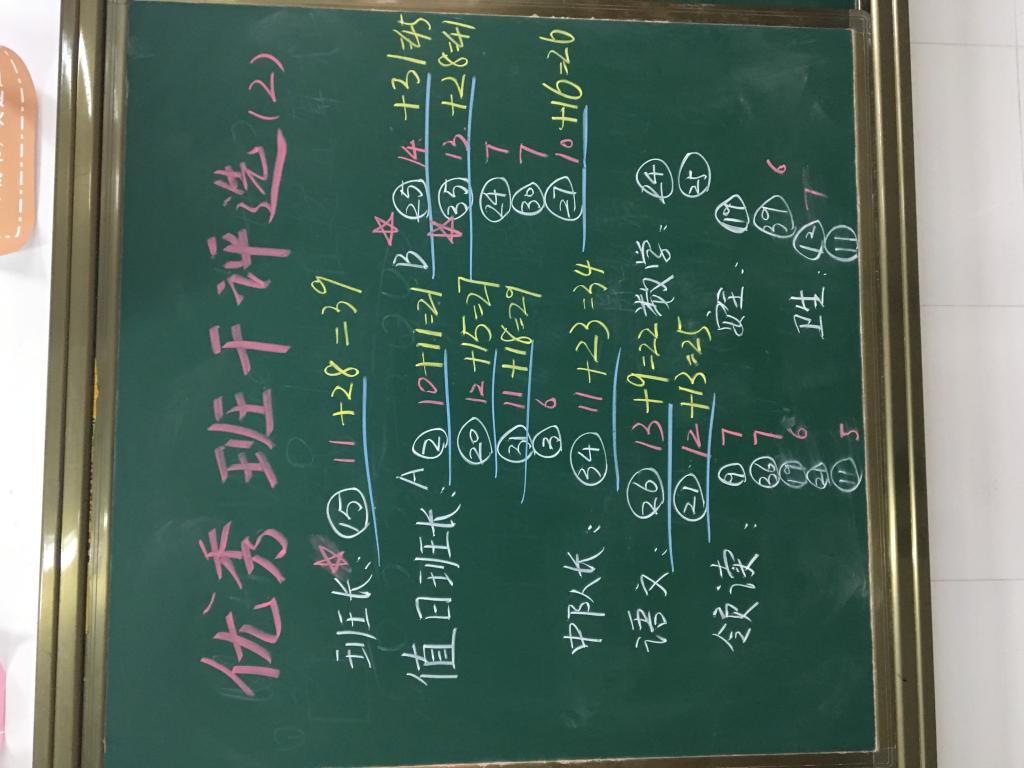 优秀班干评选(2)
班长: ⑮ 11+28=39
值日班长: A ② 10+11=21 B ㉕ 14 +31=45
⑳ 12+15=27 ㉟ 13 +28=41
㉛ 11+18=29 ㉔ 7
③ 6 ㉚ 7
㉗ 10+16=26
中队长: ㉞ 11+23=34
语文: ㉖ 13+9=22 数学: ㉔
㉑ 12+13=25 ㉕
领读: 7 : ⑲
㊱ 7 6
⑲ 6 卫生:
㉑ ⑪
⑪ 5